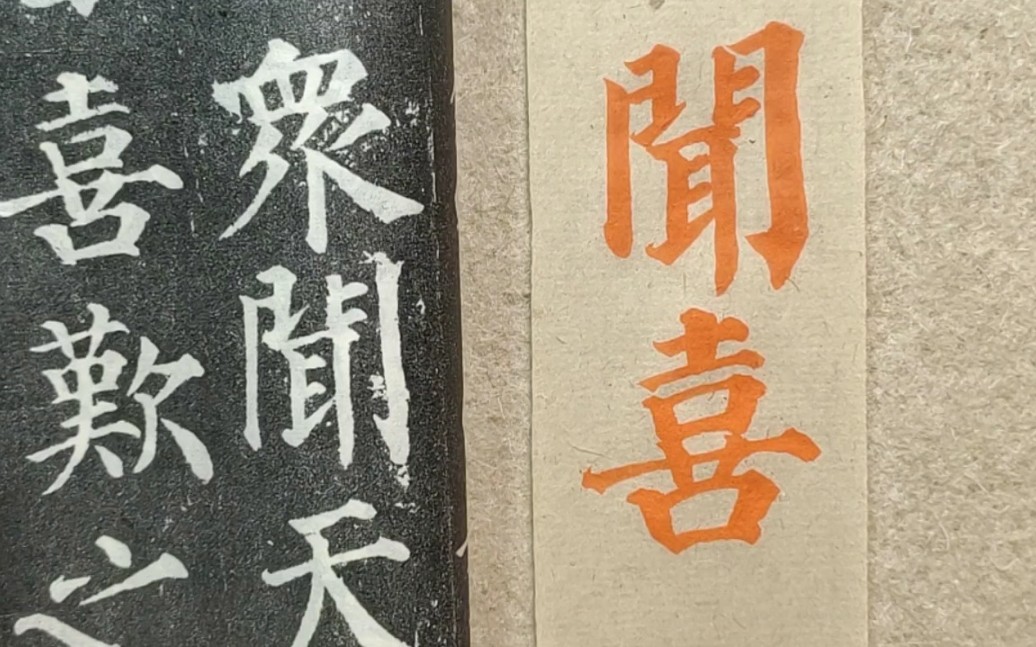 衆聞天
喜歎之
聞喜